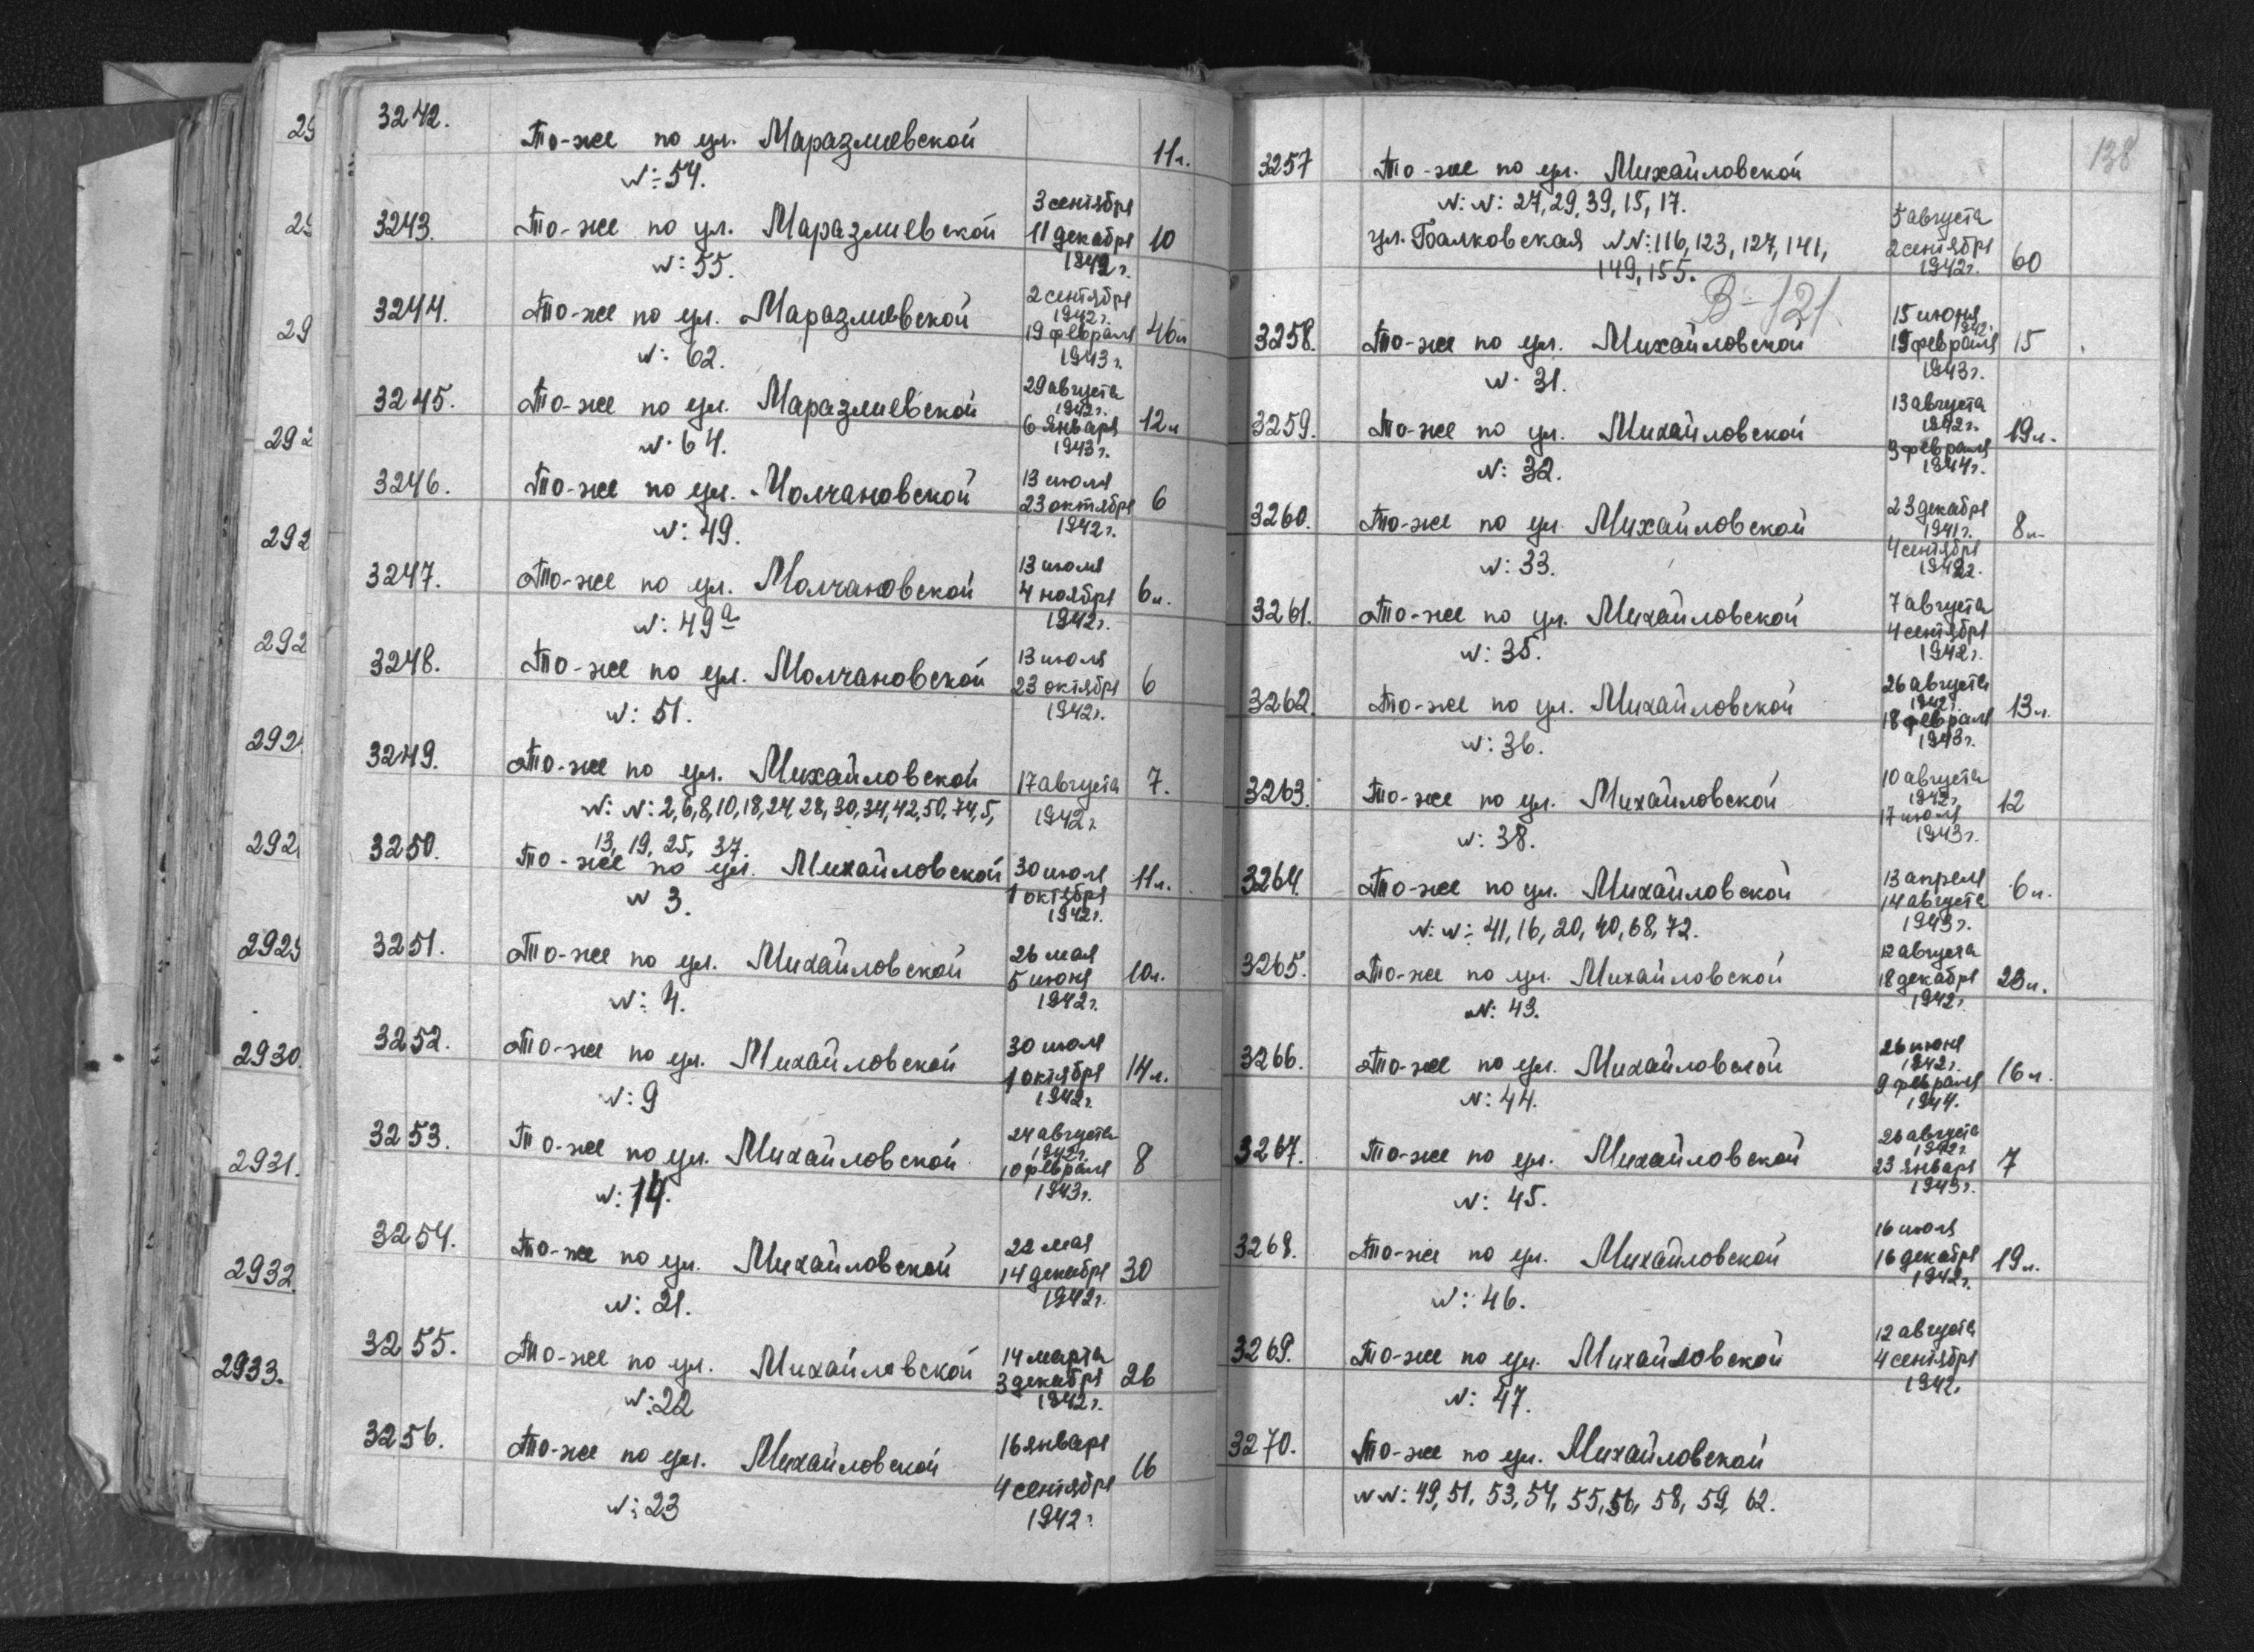 3242. То-же по ул. Маразлиевской 11л.
N: 54.
3243. То-же по ул. Маразлиевской 3 сентября 11 декабря 1942г. 10
N: 55.
3244. То-же по ул. Маразлиевской 2 сентября 1942г. 19 февраля 1943г. 46л
N: 62.
3245. То-же по ул. Маразлиевской 29 августа 1942г. 6 января 1943г. 12л
N: 64.
3246. То-же по ул. Молчановской 13 июля 23 октября 1942г. 6
N: 49.
3247. То-же по ул. Молчановской 13 июля 4 ноября 1942г. 6л.
N: 49а
3248. То-же по ул. Молчановской 13 июля 23 октября 1942г. 6
N: 51.
3249. То-же по ул. Михайловской 17 августа 1942г. 7.
N: N: 2, 6, 8, 10, 18, 24, 28, 30, 34, 42, 50, 74, 5,
13, 19, 25, 37.
3250. То-же по ул. Михайловской 30 июля 1 октября 1942г. 11л.
N 3.
3251. То-же по ул. Михайловской 26 мая 5 июня 1942г. 10л.
N: 4.
3252. То-же по ул. Михайловской 30 июля 1 октября 1942г. 14л.
N: 9
3253. То-же по ул. Михайловской 24 августа 1942г. 10 февраля 1943г. 8
N: 14.
3254. То-же по ул. Михайловской 22 мая 14 декабря 1942г. 30
N: 21.
3255. То-же по ул. Михайловской 14 марта 3 декабря 1942г. 26
N: 22
3256. То-же по ул. Михайловской 16 января 4 сентября 1942г 16
N: 23
29
29
29
292
292
292
292
292
2929
2930.
2931.
2932
2933.
138
3257 То-же по ул. Михайловской
N: N: 27, 29, 39, 15, 17.
ул. Балковская NN: 116, 123, 127, 141, 5 августа 2 сентября 1942г. 60
149, 155.
В-121
3258. То-же по ул. Михайловской 15 июня 1942г. 19 февраля 1943г. 15
N: 31.
3259. То-же по ул. Михайловской 13 августа 1942г. 9 февраля 1944г. 19л.
N: 32.
3260. То-же по ул. Михайловской 23 декабря 1941г. 4 сентября 1942г. 8л
N: 33.
3261. То-же по ул. Михайловской 7 августа 4 сентября 1942г.
N: 35.
3262. То-же по ул. Михайловской 26 августа 1942г. 18 февраля 1943г. 13л.
N: 36.
3263. То-же по ул. Михайловской 10 августа 1942г. 17 июля 1943г. 12
N: 38.
3264. То-же по ул. Михайловской 13 апреля 14 августа 1943г. 6л.
N: N: 41, 16, 20, 40, 68, 72.
3265. То-же по ул. Михайловской 12 августа 18 декабря 1942г. 23л.
N: 43.
3266. То-же по ул. Михайловской 26 июня 1942г. 9 февраля 1944. 16л.
N: 44.
3267. То-же по ул. Михайловской 26 августа 1942г. 23 января 1943г. 7
N: 45.
3268. То-же по ул. Михайловской 16 июля 16 декабря 1942г. 19л.
N: 46.
3269. То-же по ул. Михайловской 12 августа 4 сентября 1942.
N: 47.
3270. То-же по ул. Михайловской
NN: 49, 51, 53, 54, 55, 56, 58, 59, 62.